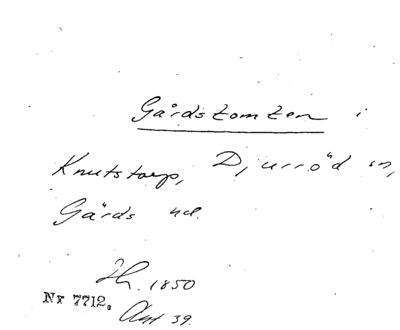 Gårdstomten i
Knutstorp, Djurröd sn,
Gärds hd.
1850
Nr 7712.
39.